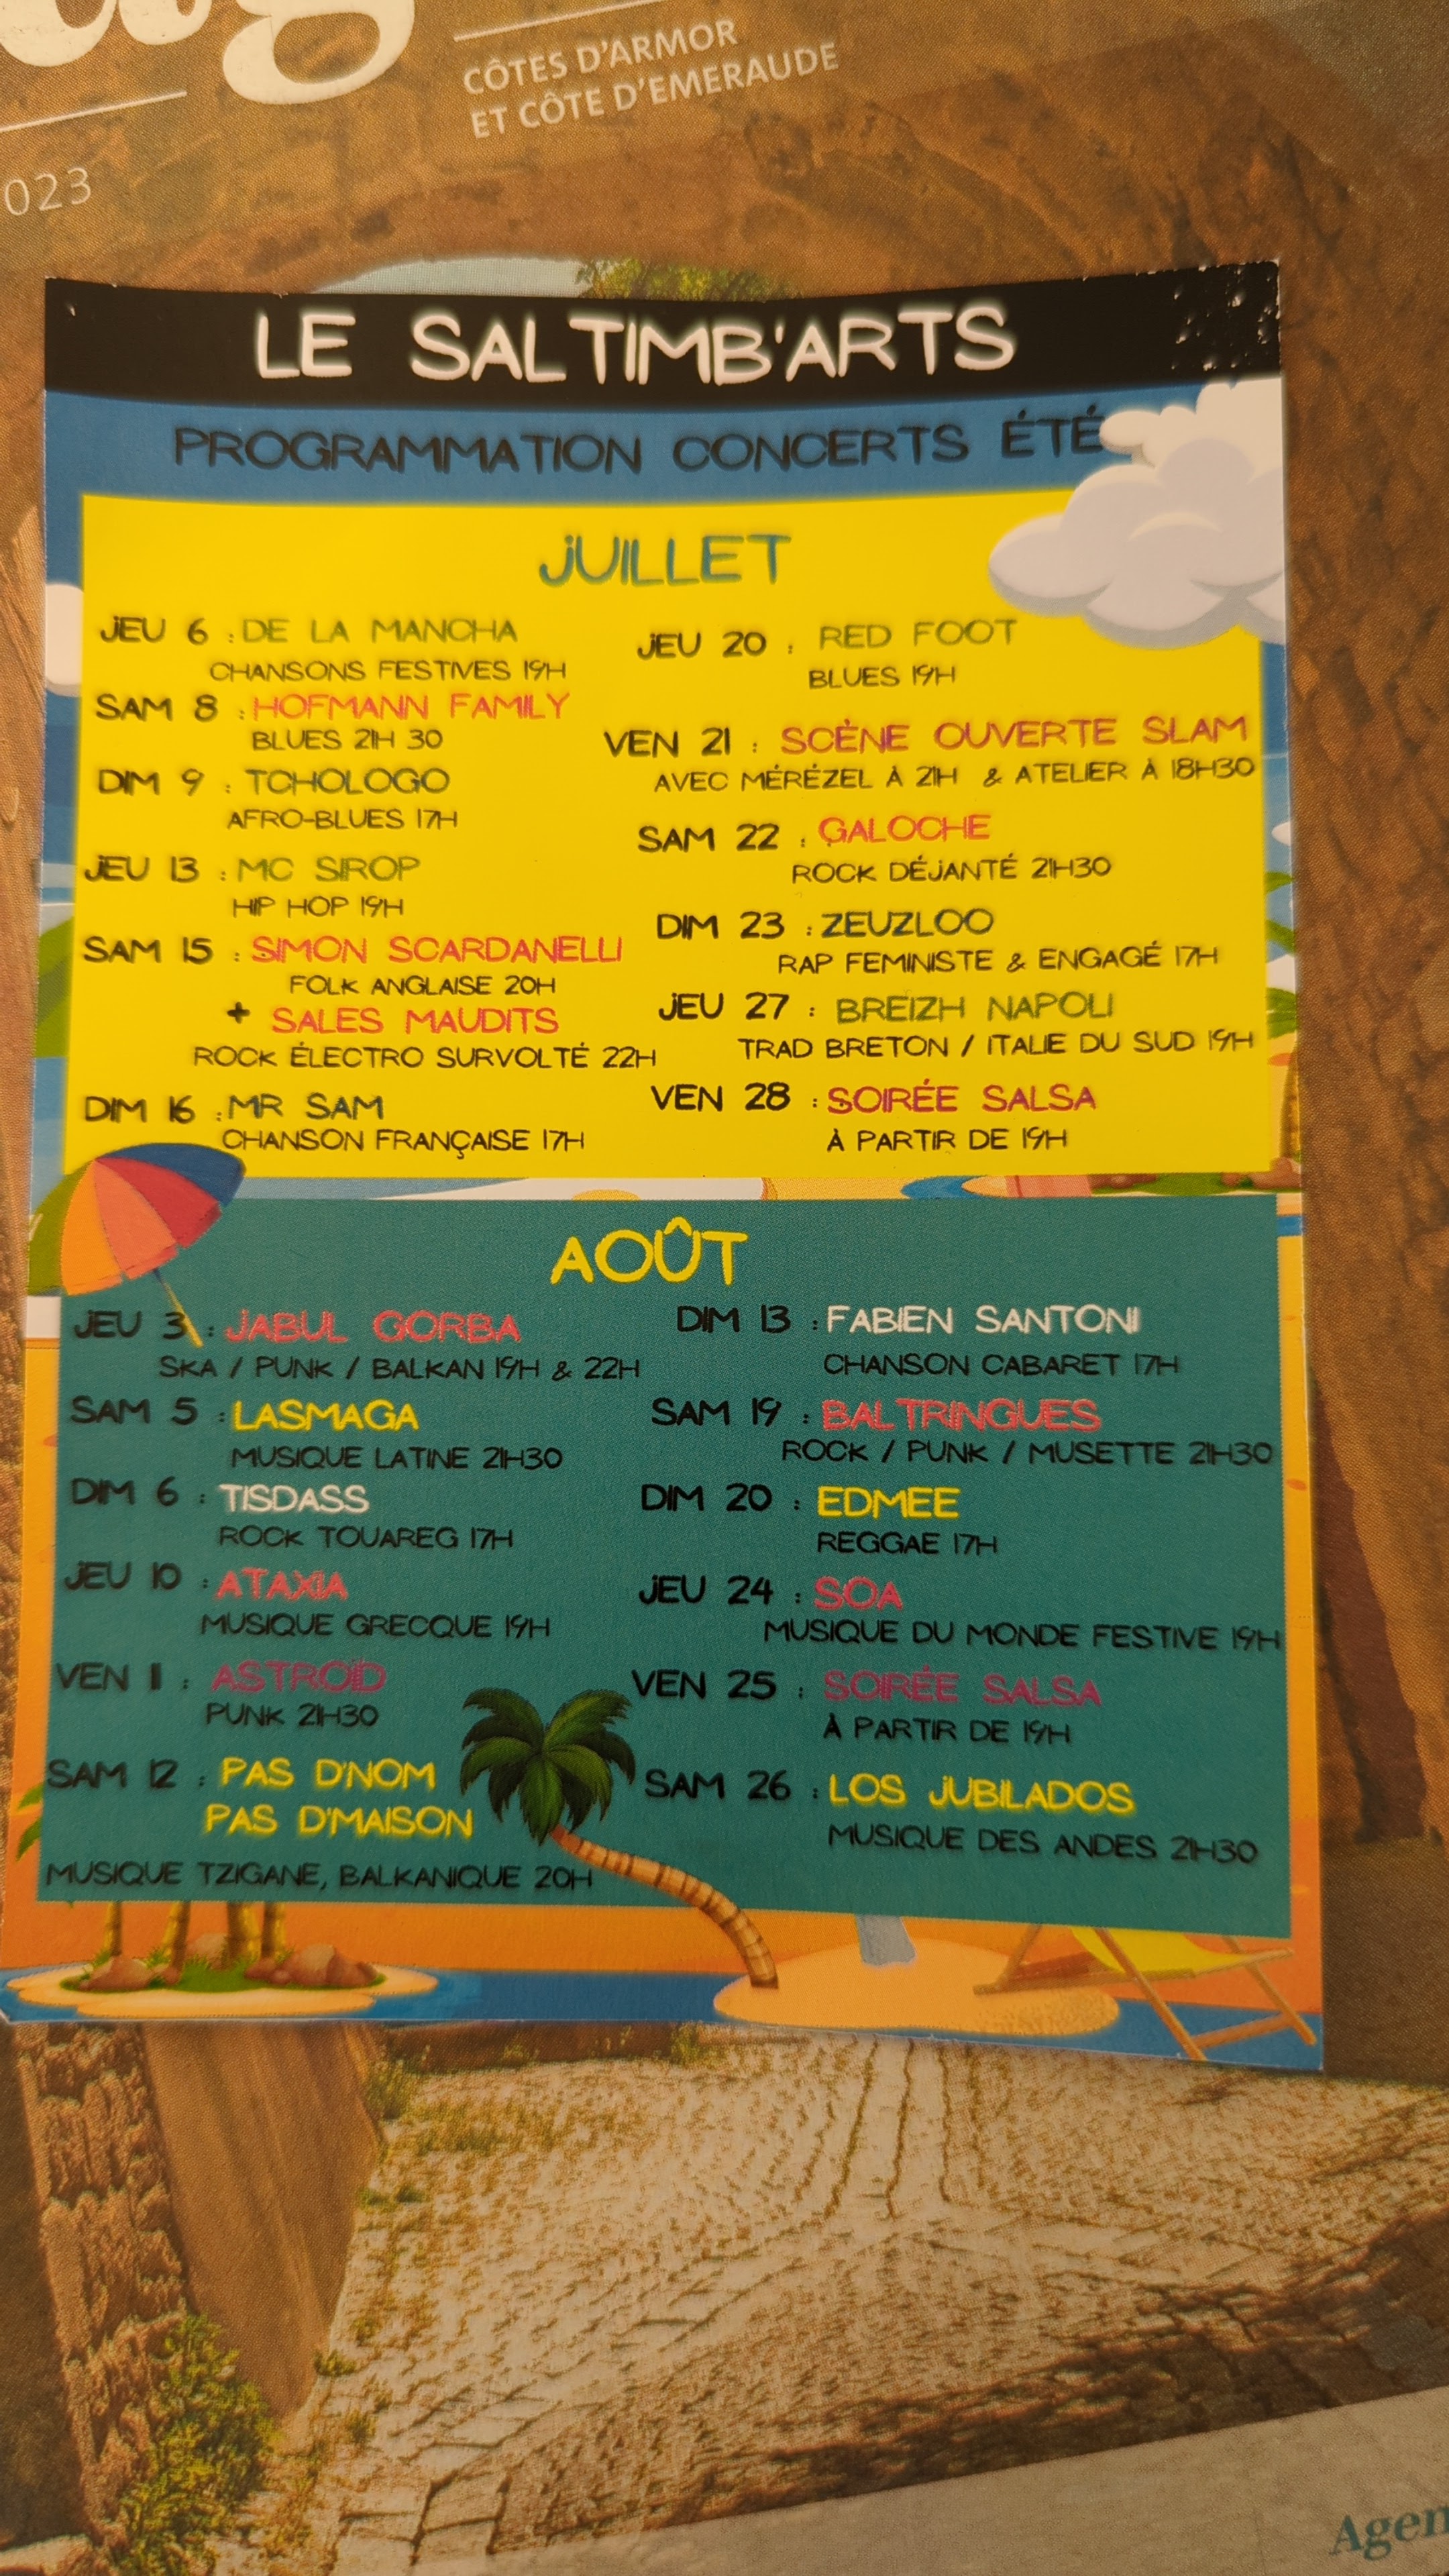 CÔTES D'ARMOR
ET CÔTE D'EMERAUDE
023
LE SALTIMB'ARTS
PROGRAMMATION CONCERTS ÉTÉ
JUILLET
JEU 6 : DE LA MANCHA
CHANSONS FESTIVES 19H
SAM 8 : HOFMANN FAMILY
BLUES 21H 30
DIM 9 : TCHOLOGO
AFRO-BLUES 17H
JEU 13 : MC SIROP
HIP HOP 19H
SAM 15 : SIMON SCARDANELLI
FOLK ANGLAISE 20H
+ SALES MAUDITS
ROCK ÉLECTRO SURVOLTÉ 22H
DIM 16 : MR SAM
CHANSON FRANÇAISE 17H
JEU 20 : RED FOOT
BLUES 19H
VEN 21 : SCÈNE OUVERTE SLAM
AVEC MÉRÉZEL À 21H & ATELIER À 18H30
SAM 22 : GALOCHE
ROCK DÉJANTÉ 21H30
DIM 23 : ZEUZLOO
RAP FEMINISTE & ENGAGÉ 17H
JEU 27 : BREIZH NAPOLI
TRAD BRETON / ITALIE DU SUD 19H
VEN 28 : SOIRÉE SALSA
À PARTIR DE 19H
AOÛT
JEU 3 : JABUL GORBA
SKA / PUNK / BALKAN 19H & 22H
SAM 5 : LASMAGA
MUSIQUE LATINE 21H30
DIM 6 : TISDASS
ROCK TOUAREG 17H
JEU 10 : ATAXIA
MUSIQUE GRECQUE 19H
VEN 11 : ASTROÏD
PUNK 21H30
SAM 12 : PAS D'NOM
PAS D'MAISON
MUSIQUE TZIGANE, BALKANIQUE 20H
DIM 13 : FABIEN SANTONI
CHANSON CABARET 17H
SAM 19 : BALTRINGUES
ROCK / PUNK / MUSETTE 21H30
DIM 20 : EDMEE
REGGAE 17H
JEU 24 : SOA
MUSIQUE DU MONDE FESTIVE 19H
VEN 25 : SOIRÉE SALSA
À PARTIR DE 19H
SAM 26 : LOS JUBILADOS
MUSIQUE DES ANDES 21H30
Agen